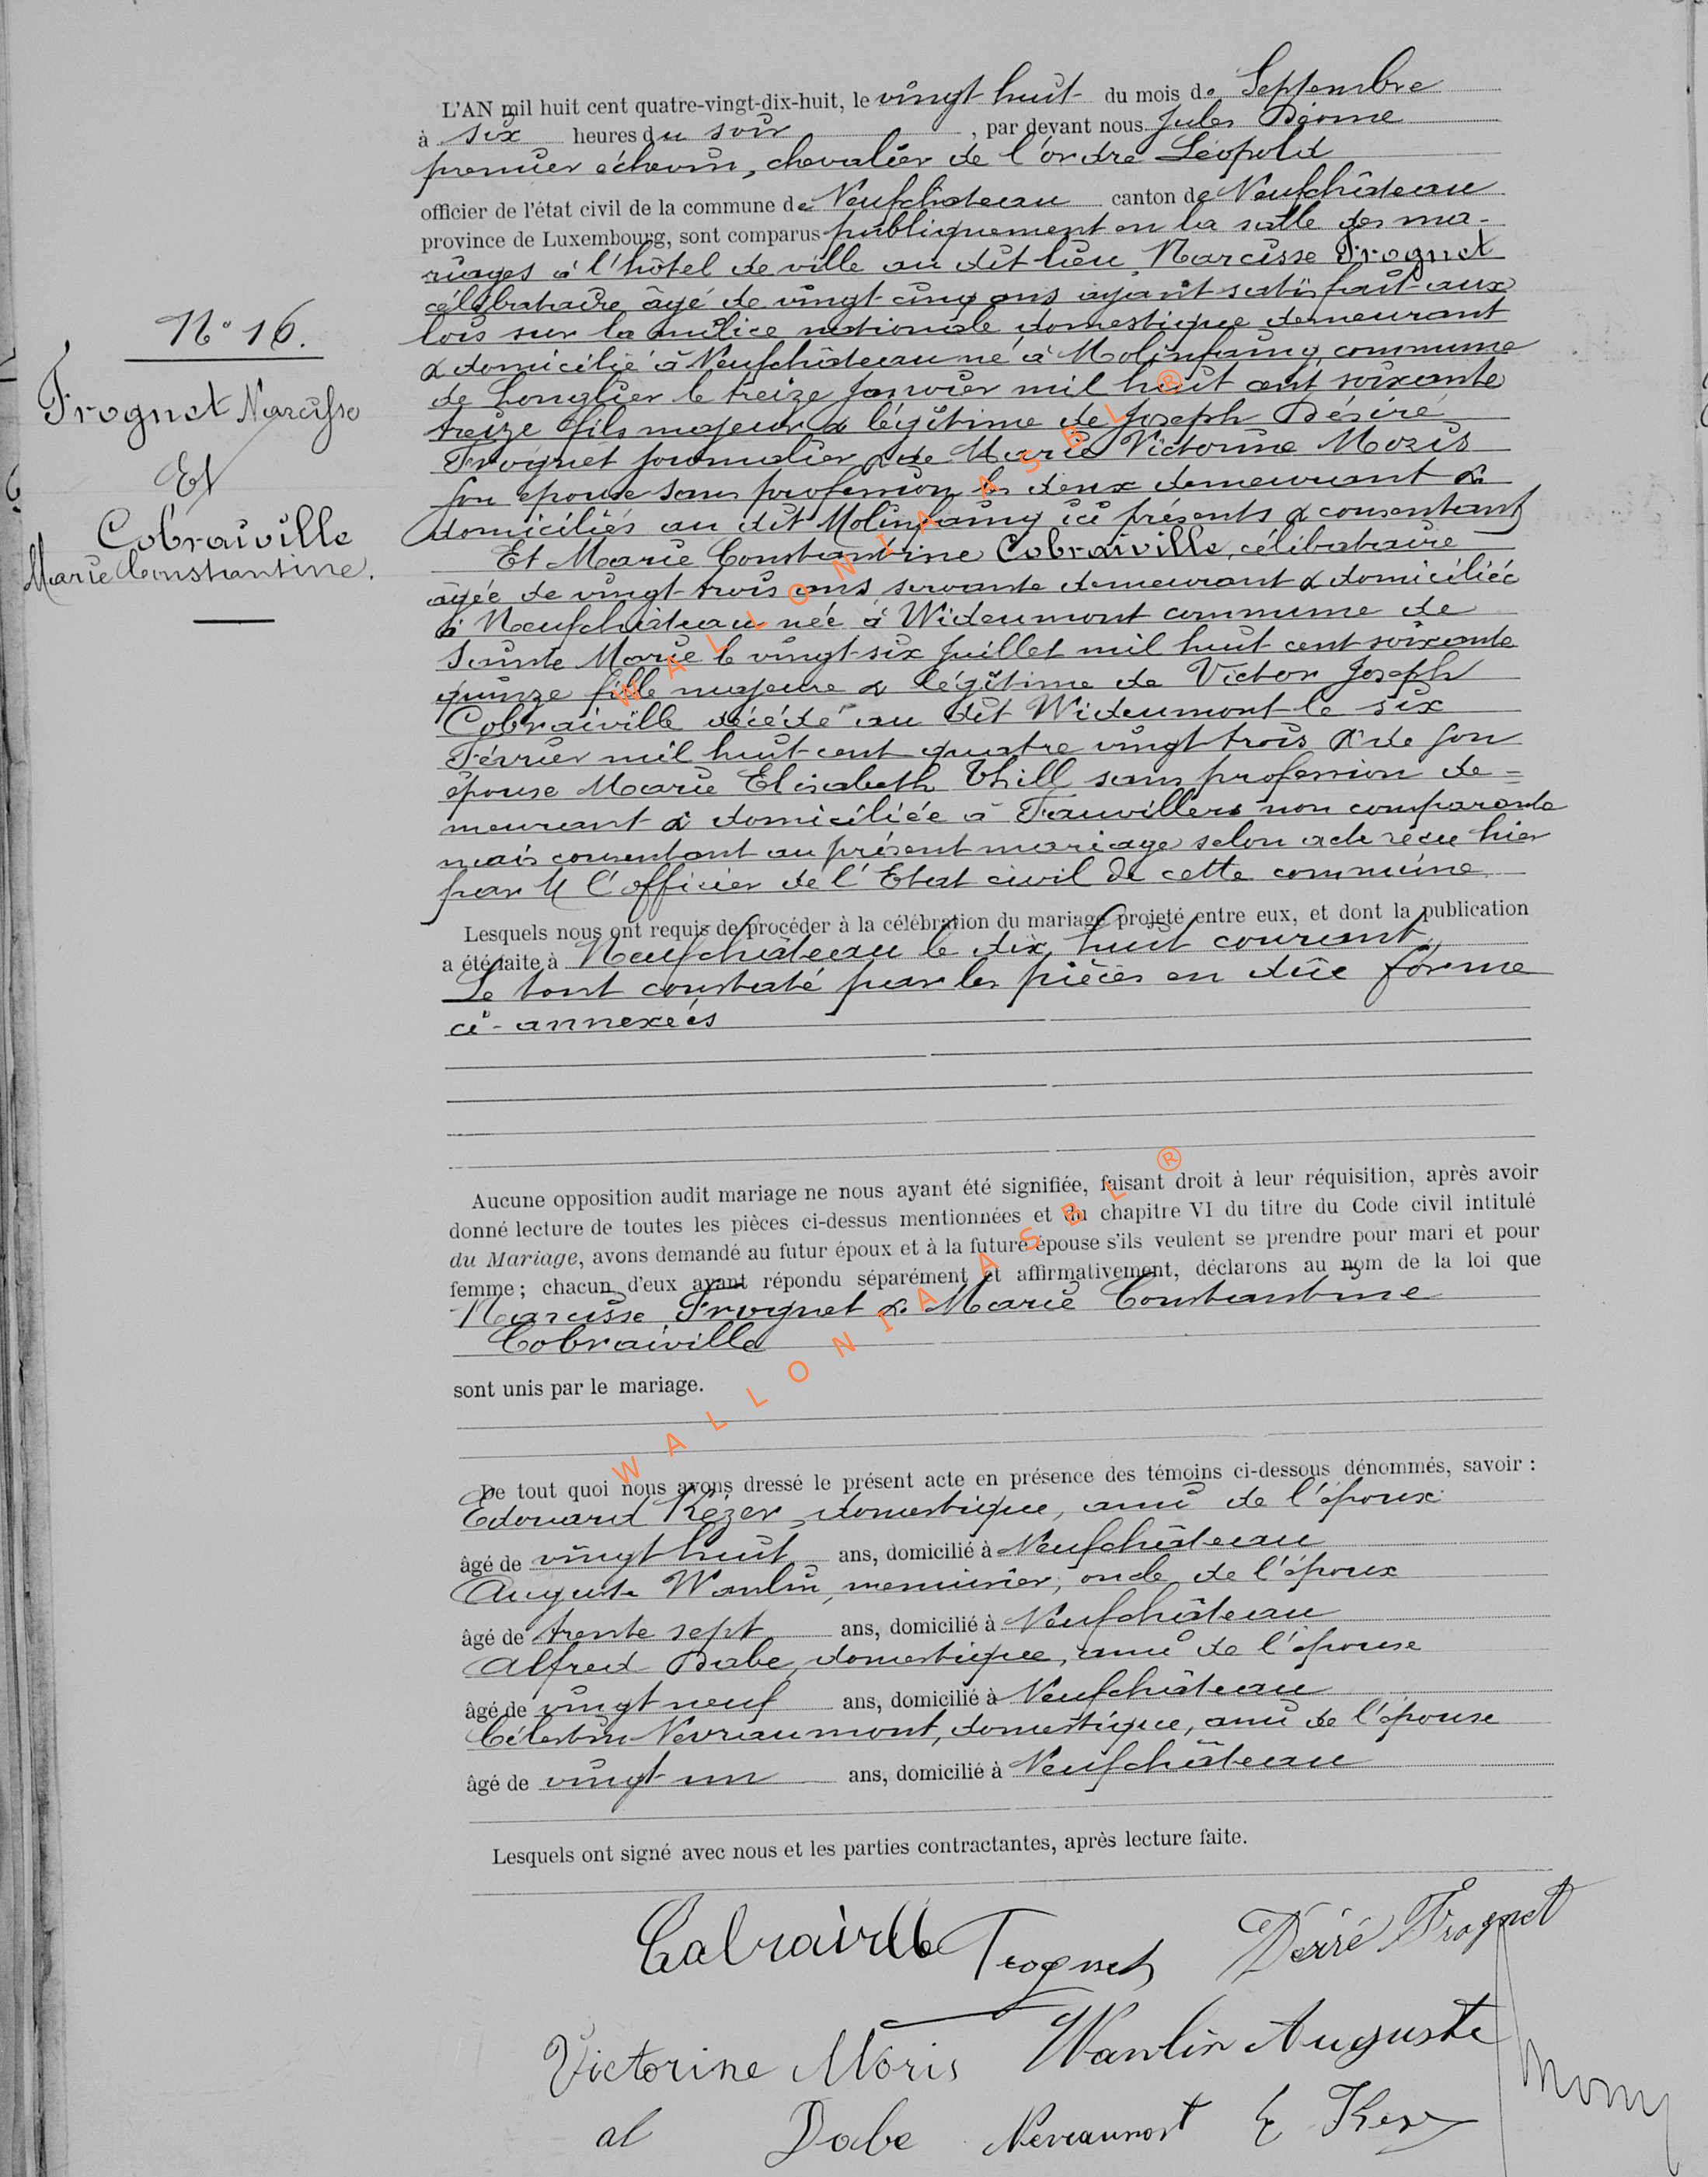 L'AN mil huit cent quatre-vingt-dix-huit, le vingt huit du mois de Septembre
à six heures du soir , par devant nous Jules
premier échevin, chevalier de l'ordre Léopold
officier de l'état civil de la commune de Neufchateau canton de Neufchâteau
province de Luxembourg, sont comparus publiquement en la salle des ma-
riages à l'hôtel de ville au dit lieu Narcisse Frognet
célibataire âgé de vingt cinq ans ayant satisfait aux
lois sur la milice nationale domestique demeurant
& domicilié à Neufchâteau né à Molinfaing commune
de Longlier le treize Janvier mil huit cent soixante
treize fils majeur & légitime de Joseph Désiré
Frognet journalier & de Marie Victorine Moris
son épouse sans profession les deux demeurant &
domiciliés au dit Molinfaing ici présents & consentants
Et Marie Constantine Cobraiville, célibataire
âgée de vingt trois ans servante demeurant & domiciliée
à Neufchâteau née à Wideumont commune de
Sainte Marie le vingt-six juillet mil huit cent soixante
quinze fille majeure & légitime de Victor Joseph
Cobraiville décédé au dit Wideumont le six
Février mil huit cent quatre vingt trois & de son
épouse Marie Elisabeth Thill sans profession de=
meurant & domiciliée à Fauvillers non comparante
mais consentant au présent mariage selon acte reçu hier
par M l'officier de l'Etat civil de cette commune
N° 16.
Frognet Narcisse
Et
Cobraiville
Marie Constantine.
Lesquels nous ont requis de procéder à la célébration du mariage projeté entre eux, et dont la publication
a été faite à Neufchâteau le dix huit courant,
Le tout constaté par les pièces en dûe forme
ci-annexées
Aucune opposition audit mariage ne nous ayant été signifiée, faisant droit à leur réquisition, après avoir
donné lecture de toutes les pièces ci-dessus mentionnées et du chapitre VI du titre du Code civil intitulé
du Mariage, avons demandé au futur époux et à la future épouse s'ils veulent se prendre pour mari et pour
femme ; chacun d'eux ayant répondu séparément et affirmativement, déclarons au nom de la loi que
Narcisse Frognet & Marie Constantine
Cobraiville
sont unis par le mariage.
De tout quoi nous avons dressé le présent acte en présence des témoins ci-dessous dénommés, savoir :
Edouard Kézer, domestique, ami de l'époux
âgé de vingt huit ans, domicilié à Neufchâteau
Auguste Wanlin, menuisier, oncle de l'époux
âgé de trente sept ans, domicilié à Neufchâteau
Alfred Dabe, domestique, ami de l'épouse
âgé de vingt neuf ans, domicilié à Neufchâteau
Célestin Nevraumont, domestique, ami de l'épouse
âgé de vingt un ans, domicilié à Neufchâteau
Lesquels ont signé avec nous et les parties contractantes, après lecture faite.
Cabraiville Frognet Désiré Frognet
Victorine Moris Wanlin Auguste
al Dabe Nevraumont E Keser
WALLONIA ASBL ®
WALLONIA ASBL ®